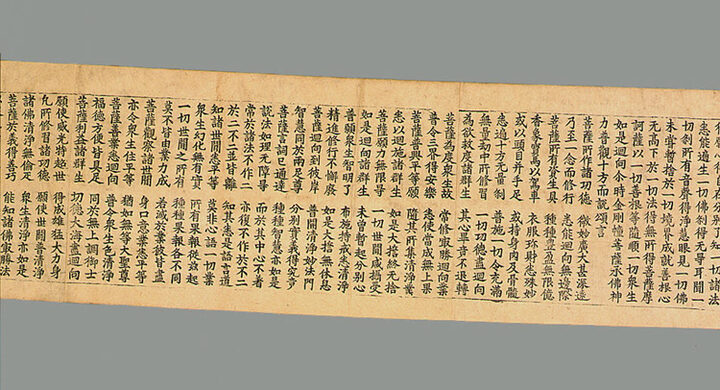 了知一切諸法
一切佛剎得无㝵耳聞一
切剎所有音聲得淨慧眼見一切佛
未曾暫捨於一切境界成就善根心
无高下於一切法得無所得菩薩摩
訶薩以一切善根等隨順一切眾生
如是迴向尒時金剛幢菩薩承佛神
力普觀十方而說頌言
菩薩所作諸功德　微妙廣大甚深遠
乃至一念而修行　悉能迴向無邊際
菩薩所有資生具　種種豐盈無限億
香象寶馬以駕車　衣服珎財悉殊妙
或以頭目并手足　或持身肉及骨髓
悉遍十方无量剎　普施一切令充滿
無量劫中所修習　一切功德盡迴向
為欲救度諸群生　其心畢竟不退轉
菩薩為度眾生故　常修㝡勝迴向業
普令三界得安樂　悉使當成無上果
菩薩普興平等願　隨其所集清淨業
悉以迴施諸群生　如是大捨終无捨
菩薩願力無限㝵　一切世間咸攝受
如是迴向諸群生　未曾暫起分別心
普願眾生智明了　布施持戒悉清淨
精進修行不懈廢　如是大捨無休息
菩薩迴向到彼岸　普開清淨妙法門
智慧同於兩足尊　分別實義得究竟
菩薩言詞已通達　種種智慧亦如是
說法如理无障㝵　而於其中心不著
常於諸法不作二　亦復不作於不二
於二不二並皆離　知其悉是語言道
知諸世間悉平等　莫非心語一切業
眾生幻化無有實　所有果報從茲起
一切世間之所有　種種果報各不同
莫不皆由業力成　若滅於業彼皆盡
菩薩觀察諸世間　身口意業悉平等
亦令眾生住平等　猶如無等大聖尊
菩薩善業悉迴向　普令眾生色清淨
福德方便皆具足　同於無上調御士
菩薩利益諸群生　功德大海盡迴向
願使威光特超世　得成雄猛大力身
凡所修習諸功德　願使世間普清淨
諸佛清淨無倫匹　眾生清淨亦如是
菩薩於義得善巧　能知諸佛㝡勝法